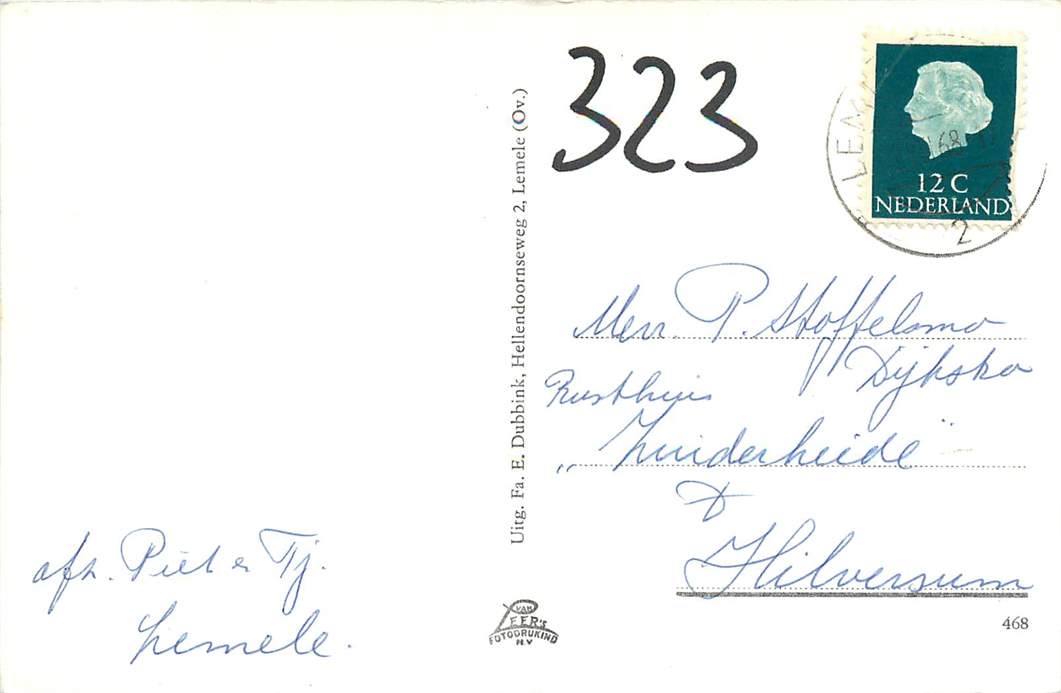 323
LEM
68
12 C
NEDERLAND
2
Uitg. Fa. E. Dubbink, Hellendoornseweg 2, Lemele (Ov.)
Mevr. P. Stoffelsma
Dijkstra
Rusthuis
„Zuiderheide"
Hilversum
afz. Piet en Tj.
Lemele.
VAN
LEER'S
FOTODRUKIND
N.V
468